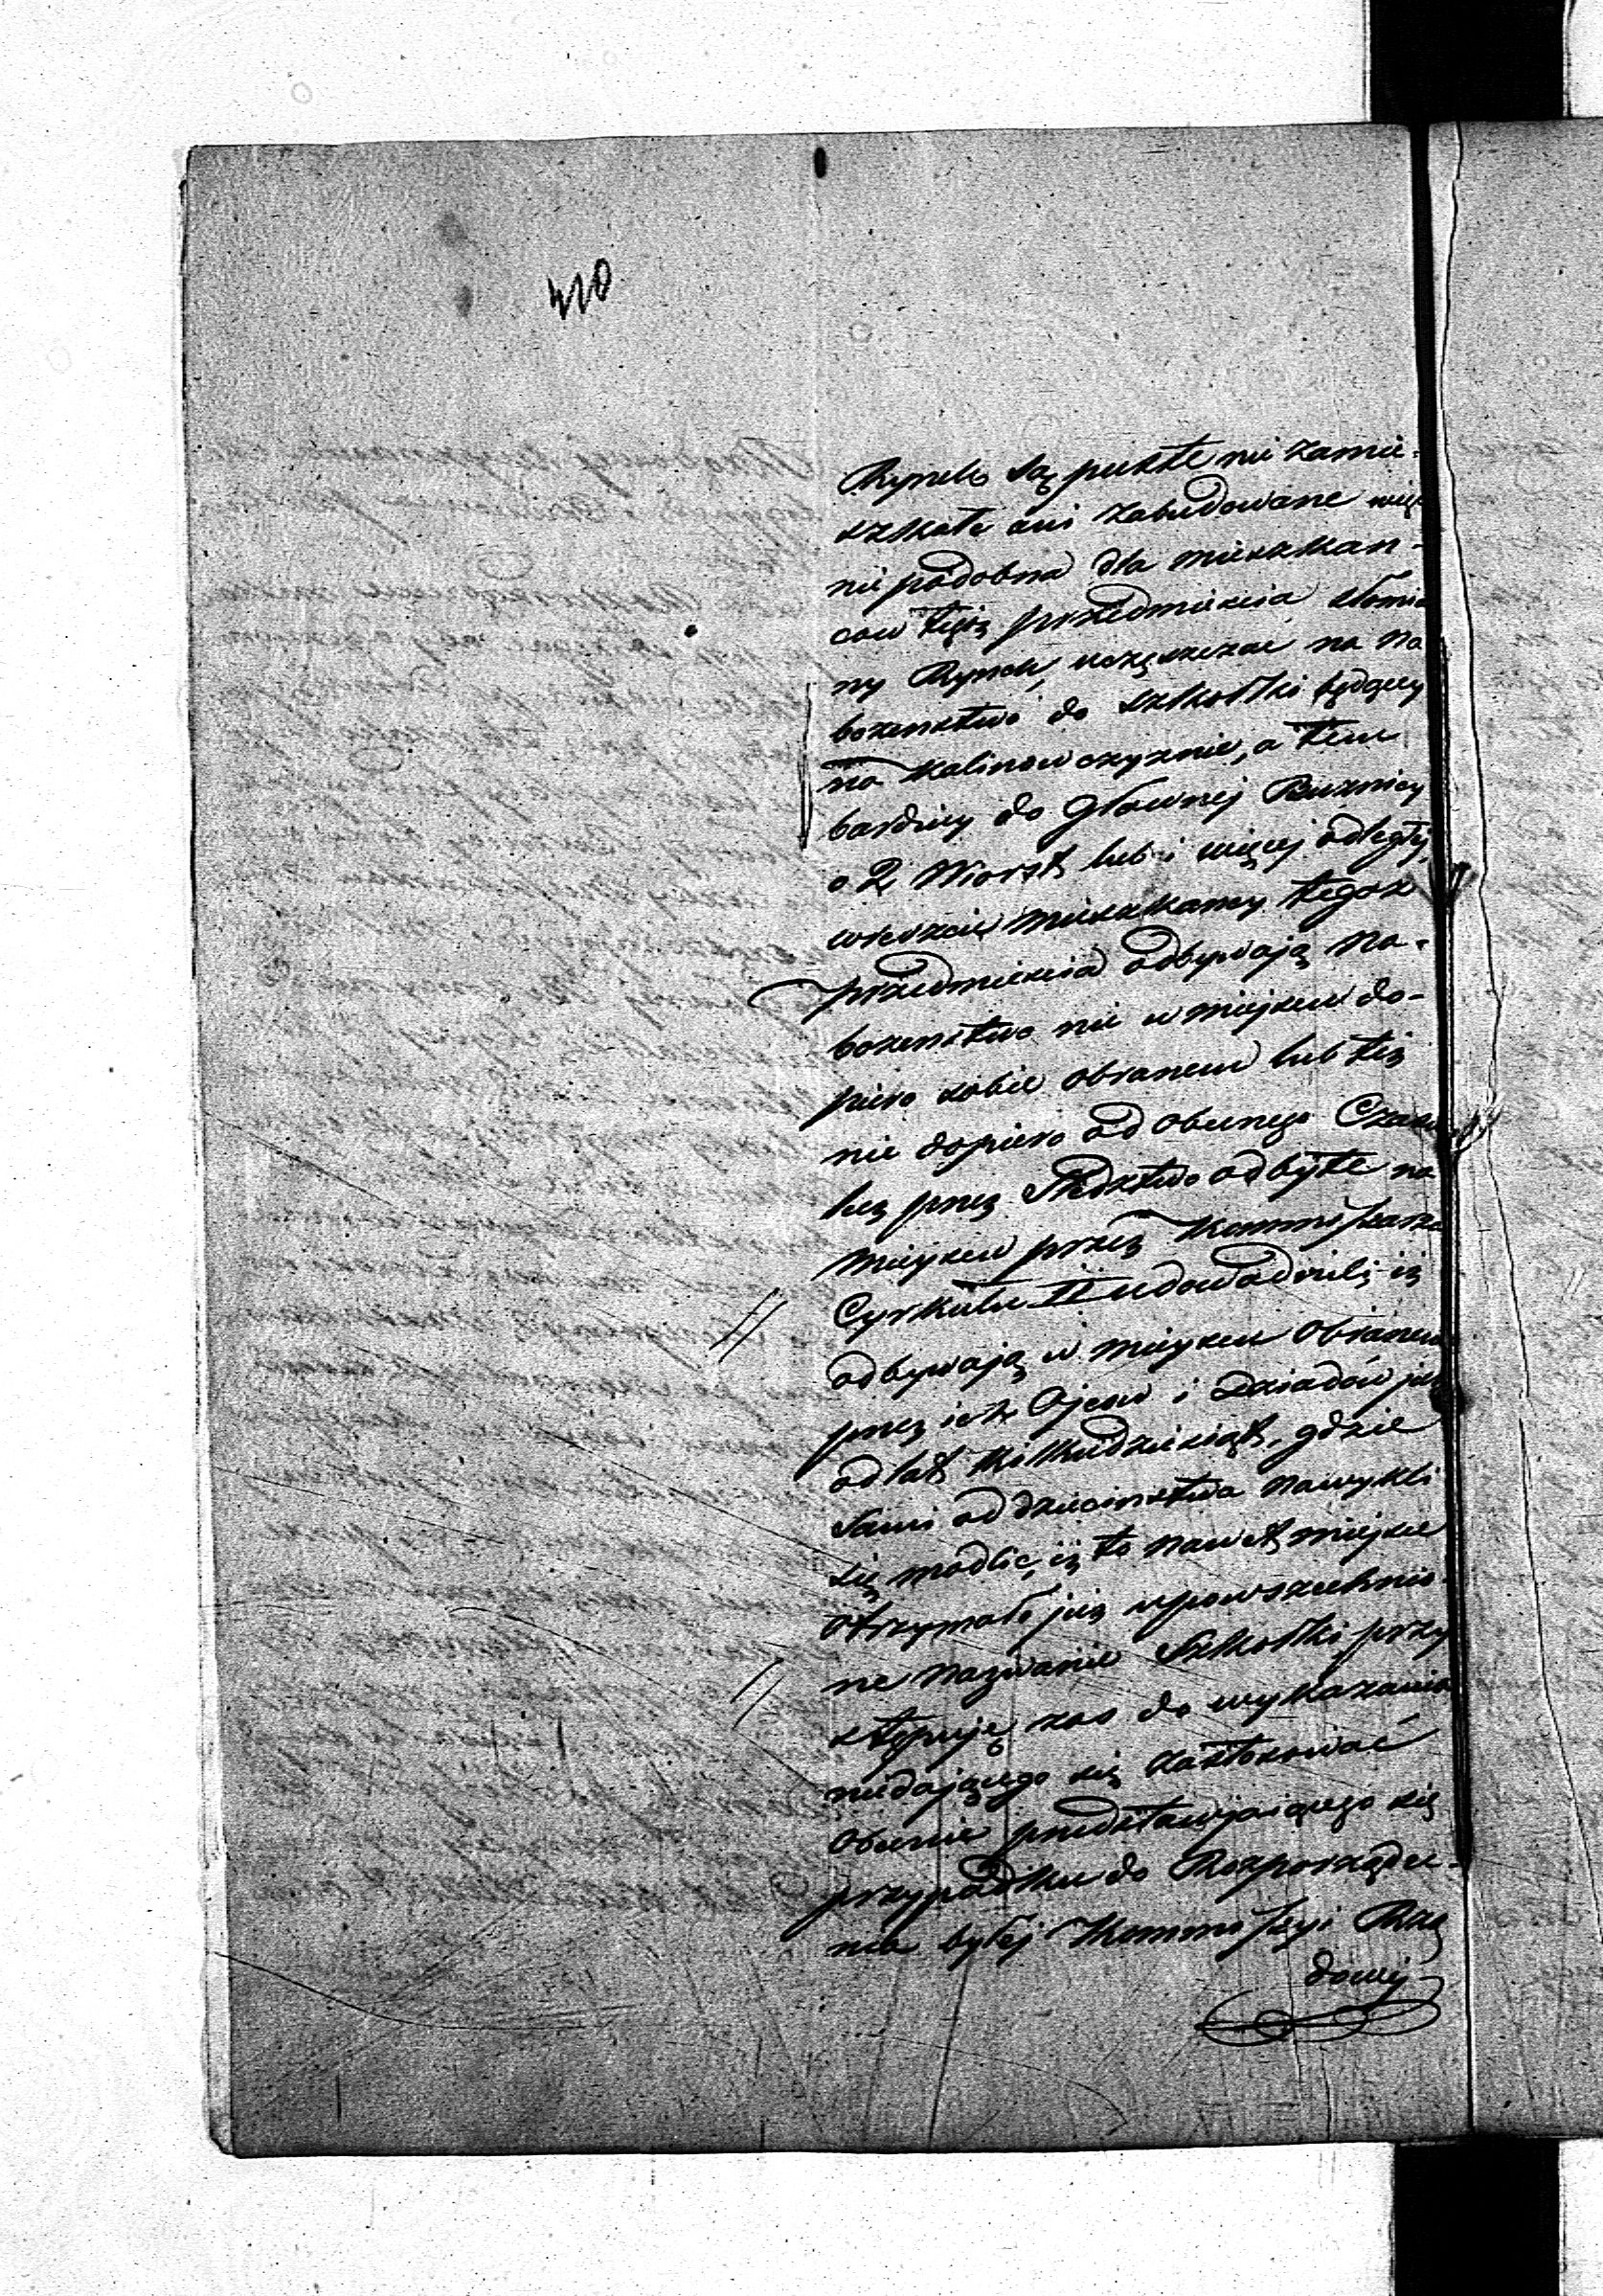 420
Rynek są puste nie zamie-
szkałe ani zabudowane więc
nie podobna dla mieszkań-
ców tegoż przedmieścia słomia
ny Rynek, uczęszczać na na
bozenstwo do szkołki będącey
na Kalinowczyznie, a tem
bardziey do Głownej Buznicy
o 2 Wiorsty lub i więcej odległej,
wreszcie mieszkancy tegoz
przedmiescia odbywają na-
bozenstwo nie w miejscu do-
piero sobie obranem lub też
nie dopiero od obecnego Czasu
lecz przez Sledztwo odbyte na
mieyscu przez Kommissarza
Cyrkułu II udowodnili, iż
odbywają w mieyscu obranem
przez ich Ojcow i Dziadów już
od lat kilkudziesiąt, gdzie
sami od dziecinstwa nawykli
się modlic, iż to nawet miejsce
otrzymało juz upowszechnio-
ne nazwanie Szkołki, przy
stępuję zas do wykazania
niedającego się zastosować
obecnie przedstawiającego się
przypadku do Rozporządze-
nia byłej Kommissyi Rzą
dowej